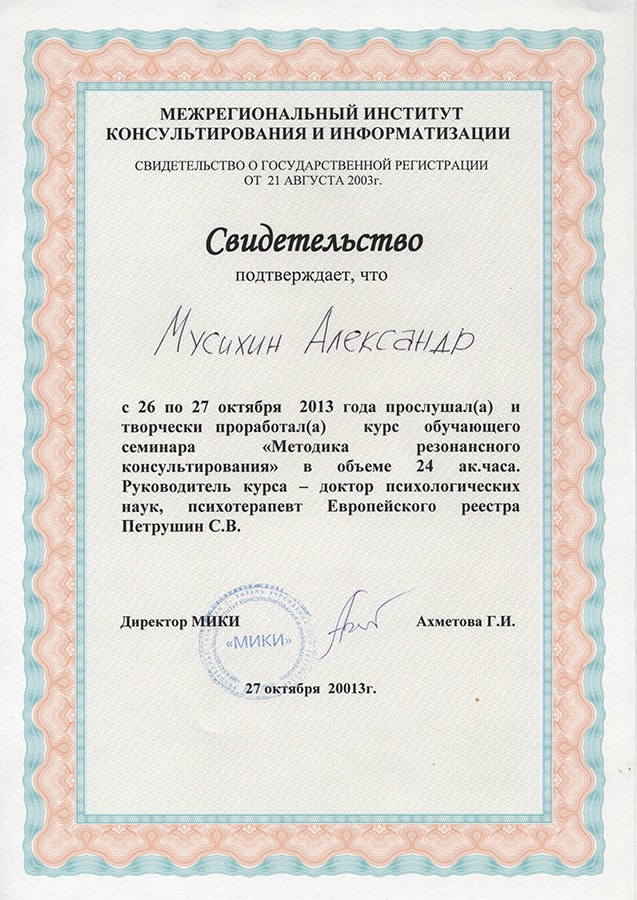 МЕЖРЕГИОНАЛЬНЫЙ ИНСТИТУТ
КОНСУЛЬТИРОВАНИЯ И ИНФОРМАТИЗАЦИИ
СВИДЕТЕЛЬСТВО О ГОСУДАРСТВЕННОЙ РЕГИСТРАЦИИ
ОТ 21 АВГУСТА 2003г.
Свидетельство
подтверждает, что
Мусихин Александр
с 26 по 27 октября 2013 года прослушал(а) и
творчески проработал(а) курс обучающего
семинара «Методика резонансного
консультирования» в объеме 24 ак.часа.
Руководитель курса – доктор психологических
наук, психотерапевт Европейского реестра
Петрушин С.В.
Директор МИКИ
«МИКИ»
Ахметова Г.И.
27 октября 20013г.